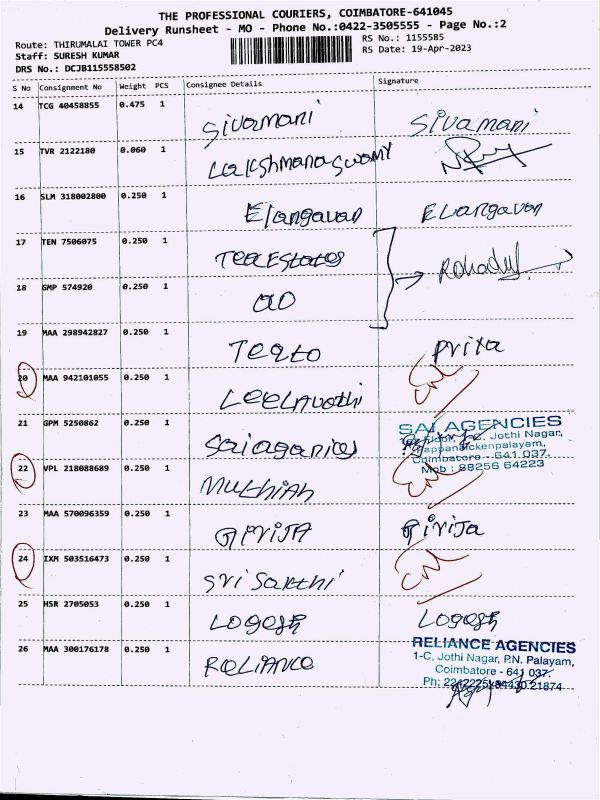 THE PROFESSIONAL COURIERS, COIMBATORE-641045
Delivery Runsheet - MO - Phone No.:0422-3505555 - Page No.:2
Route: THIRUMALAI TOWER PC4
RS No.: 1155585
Staff: SURESH KUMAR
RS Date: 19-Apr-2023
DRS No.: DCJB115558502
S No Consignment No Weight PCS Consignee Details Signature
14 TCG 40458855 0.475 1 Sivamani Sivamani
15 TVR 2122180 0.060 1 Lakshmanaswamy
16 SLM 318002800 0.250 1 Elangavan Elangavan
17 TEN 7506075 0.250 1 Tea Estates
18 GMP 574920 0.250 1 do
19 MAA 298942827 0.250 1 Priya
20 MAA 942101055 0.250 1 Leelavathi
21 GPM 5250862 0.250 1
SAI AGENCIES
Jothi Nagar,
Pappanaickenpalayam,
Coimbatore - 641 037.
Mob : 98256 64223
22 VPL 218088689 0.250 1 Muthiah
23 MAA 570096359 0.250 1 Girija Girija
24 IXM 503516473 0.250 1 Sri Sakthi
25 HSR 2705053 0.250 1 Logesh Logesh
26 MAA 300176178 0.250 1 Reliance
RELIANCE AGENCIES
1-C. Jothi Nagar, P.N. Palayam,
Coimbatore - 641 037.
Ph: